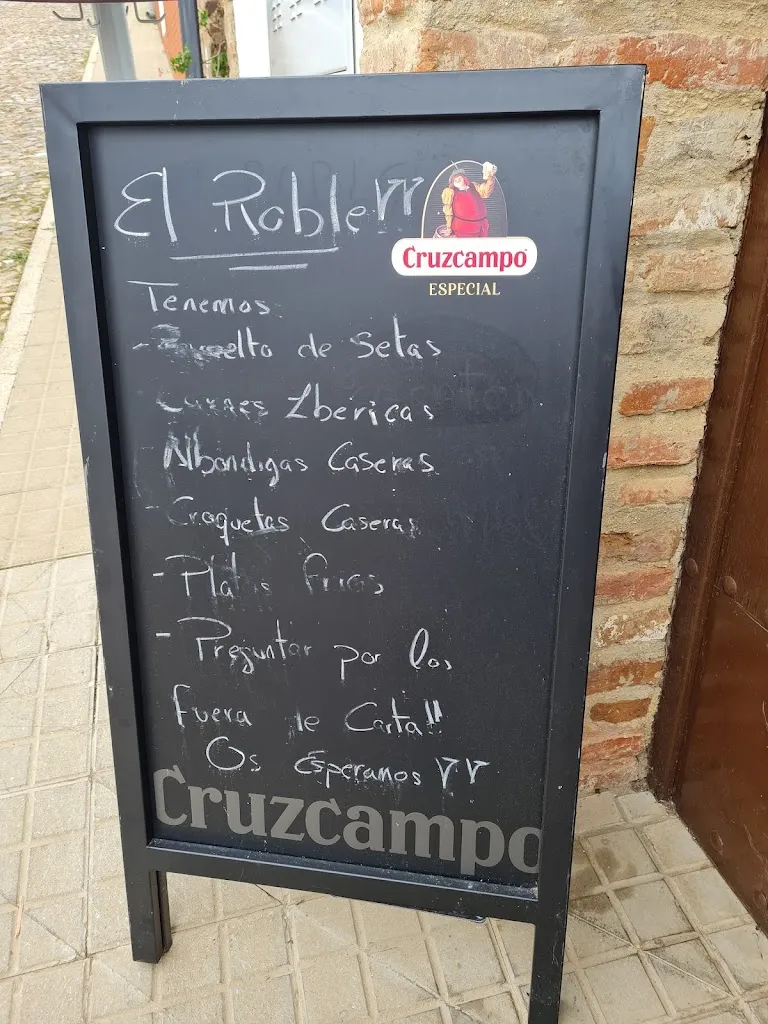 El Roble
Cruzcampo
ESPECIAL
Tenemos
- Revuelto de Setas
Carnes Ibericas
Albondigas Caseras
- Croquetas Caseras
- Platos frios
- Preguntar por los
fuera de Carta!!
Os Esperamos
Cruzcampo